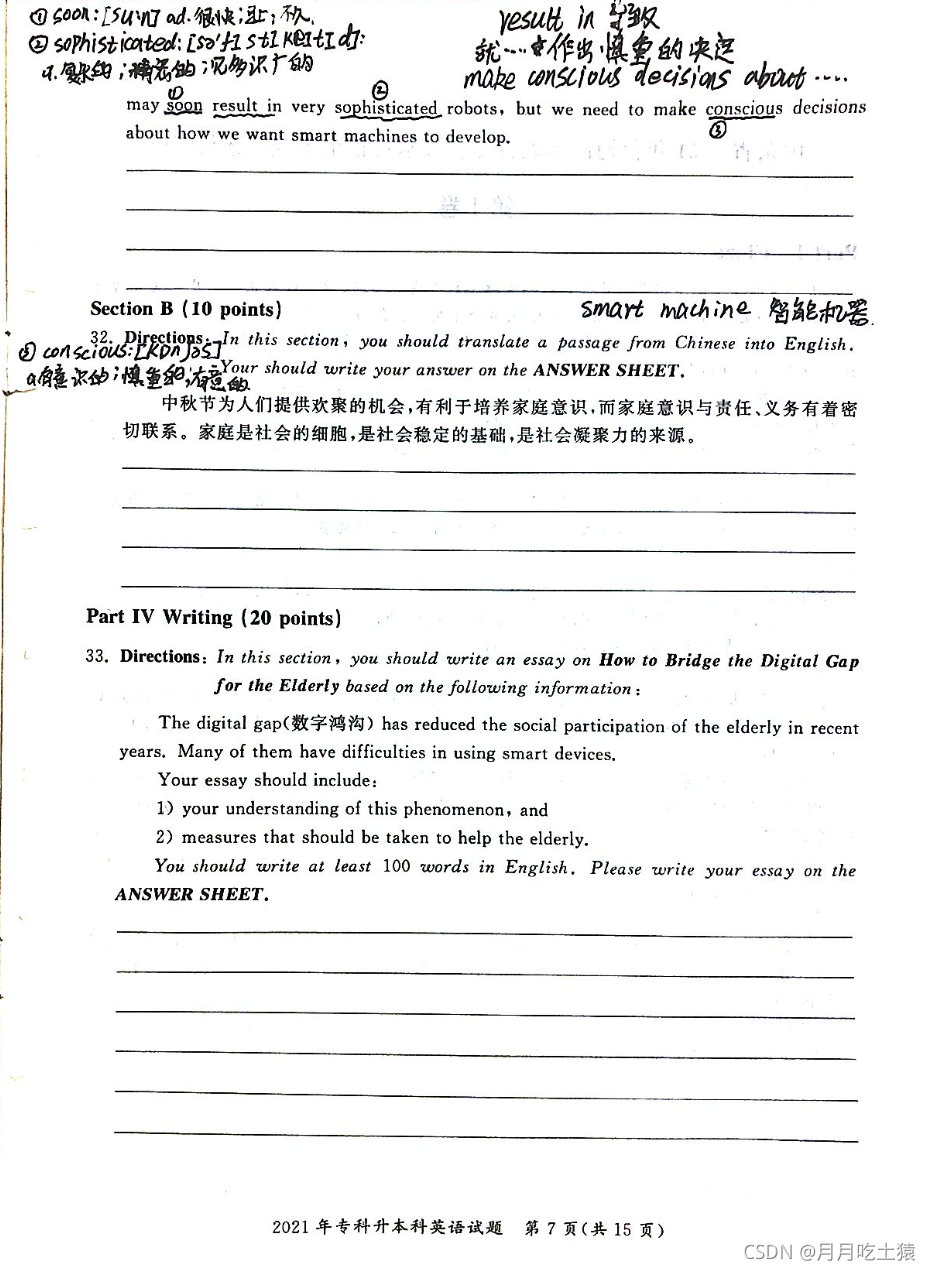 ① soon: [su:n] ad. 很快;马上;不久.
② sophisticated: [sə'fɪstɪkeɪtɪd]:
a. 复杂的;精密的;见多识广的
result in 导致
就……作出慎重的决定
make conscious decisions about ....
① ②
may soon result in very sophisticated robots, but we need to make conscious decisions
③
about how we want smart machines to develop.
Section B (10 points)
smart machine 智能机器.
32. Directions: In this section, you should translate a passage from Chinese into English.
③ conscious: [kɒnʃəs]
Your should write your answer on the ANSWER SHEET.
a. 有意识的;慎重的;有意的
中秋节为人们提供欢聚的机会,有利于培养家庭意识,而家庭意识与责任、义务有着密
切联系。家庭是社会的细胞,是社会稳定的基础,是社会凝聚力的来源。
Part IV Writing (20 points)
33. Directions: In this section, you should write an essay on How to Bridge the Digital Gap
for the Elderly based on the following information:
The digital gap(数字鸿沟) has reduced the social participation of the elderly in recent
years. Many of them have difficulties in using smart devices.
Your essay should include:
1) your understanding of this phenomenon, and
2) measures that should be taken to help the elderly.
You should write at least 100 words in English. Please write your essay on the
ANSWER SHEET.
2021 年专科升本科英语试题 第 7 页(共 15 页)
CSDN @月月吃土猿